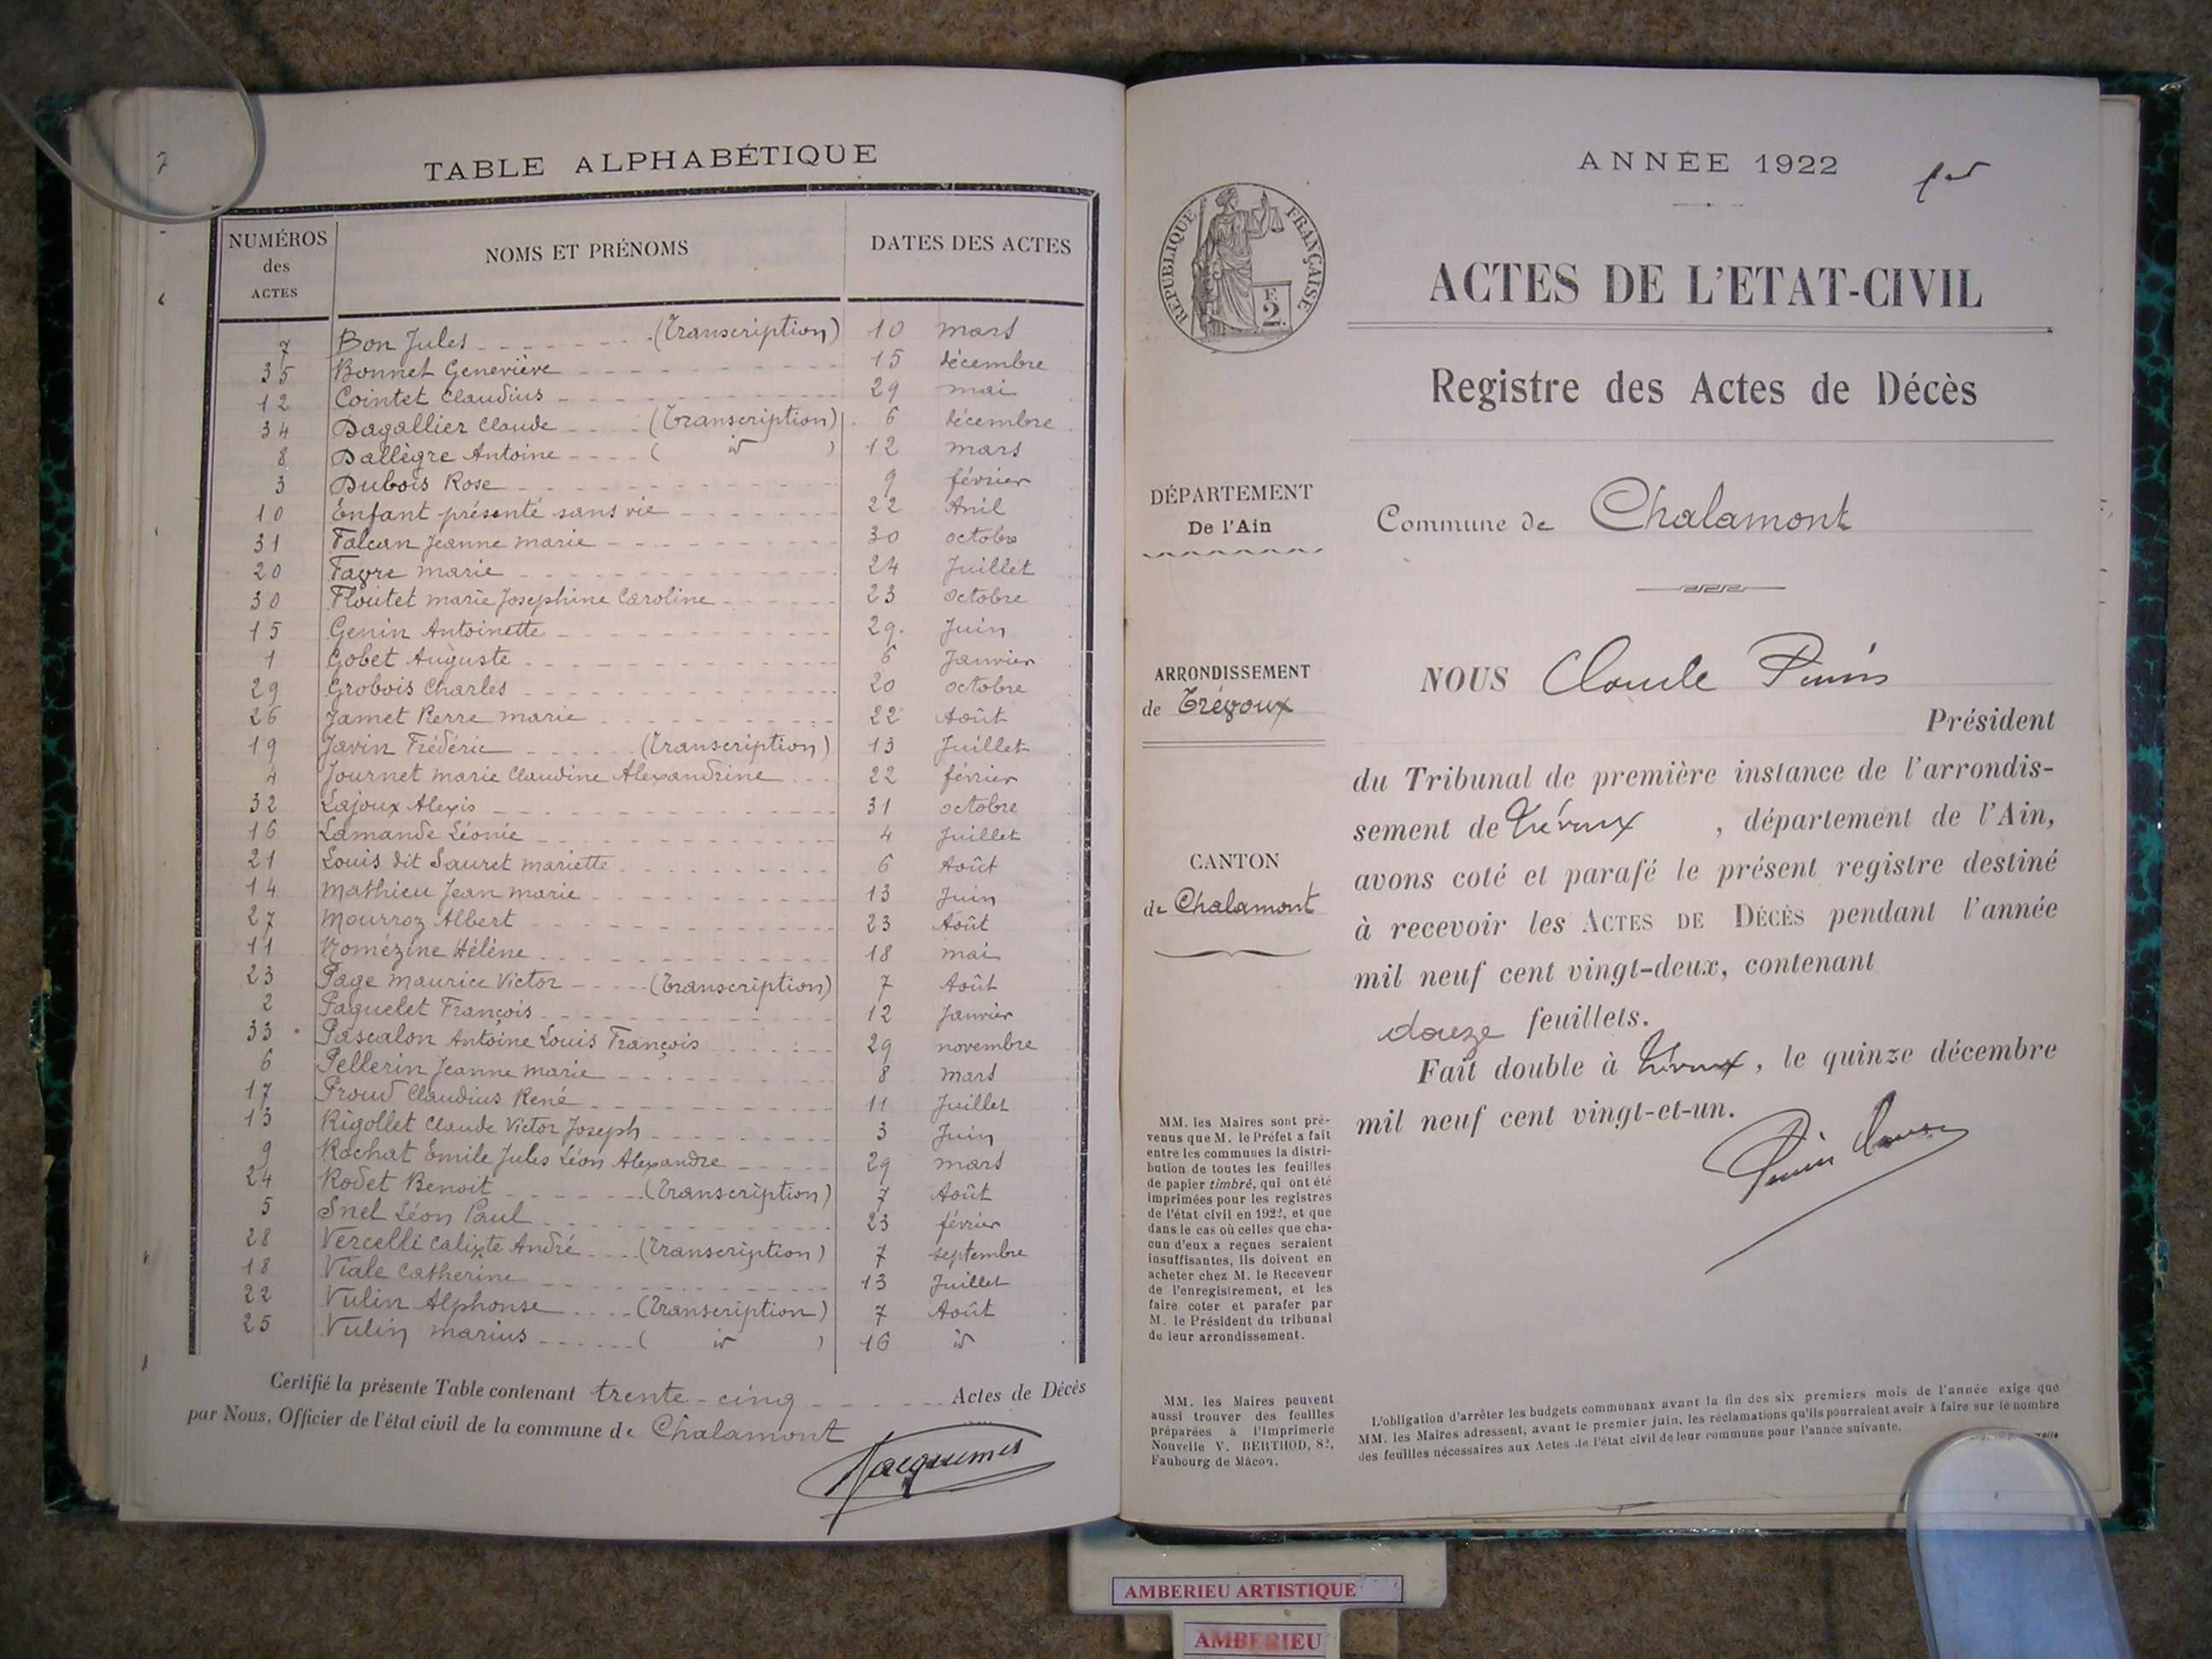 TABLE ALPHABÉTIQUE
NUMÉROS des ACTES NOMS ET PRÉNOMS DATES DES ACTES
7 Bon Jules (Transcription) 10 mars
35 Bonnet Geneviève 15 décembre
12 Cointet Claudius 29 mai
34 Dagallier Claude (Transcription) 6 décembre
8 Dallègre Antoine ( id ) 12 mars
3 Dubois Rose 9 février
10 Enfant présenté sans vie 22 Avril
31 Falcan Jeanne marie 30 octobre
20 Favre marie 24 Juillet
30 Floutet marie Josephine Caroline 23 octobre
15 Genin Antoinette 29 Juin
1 Gobet Auguste 6 Janvier
29 Grobois Charles 20 octobre
26 Jamet Pierre marie 22 Août
19 Javin Frédéric (Transcription) 13 Juillet
4 Journet marie Claudine Alexandrine 22 février
32 Lajoux Alexis 31 octobre
16 Lamande Léonie 4 Juillet
21 Louis dit Sauret mariette 6 Août
14 Mathieu Jean marie 13 Juin
27 Mourroz Albert 23 Août
11 Nomézine Hélène 18 mai
23 Page maurice Victor (Transcription) 7 Août
2 Paquelet François 12 Janvier
33 Pascalon Antoine Louis François 29 novembre
6 Pellerin Jeanne marie 8 mars
17 Proud Claudius René 11 Juillet
13 Rigollet Claude Victor Joseph 3 Juin
9 Rochat Emile Jules Léon Alexandre 29 mars
24 Rodet Benoit (Transcription) 7 Août
5 Snel Léon Paul 23 février
28 Vercelli Calixte André (Transcription) 7 septembre
18 Viale Catherine 13 Juillet
22 Vulin Alphonse (Transcription) 7 Août
25 Vulin marius ( id ) 16 id
Certifié la présente Table contenant trente-cinq Actes de Décès
par Nous, Officier de l'état civil de la commune de Chalamont
ANNÉE 1922
RÉPUBLIQUE FRANÇAISE
F. 2.
ACTES DE L'ETAT-CIVIL
Registre des Actes de Décès
DÉPARTEMENT
De l'Ain
Commune de Chalamont
ARRONDISSEMENT
de Trévoux
CANTON
de Chalamont
NOUS Claude
Président
du Tribunal de première instance de l'arrondis-
sement de Trévoux, département de l'Ain,
avons coté et parafé le présent registre destiné
à recevoir les ACTES DE DÉCÈS pendant l'année
mil neuf cent vingt-deux, contenant
douze feuillets.
Fait double à Trévoux, le quinze décembre
mil neuf cent vingt-et-un.
MM. les Maires sont pré-
venus que M. le Préfet a fait
entre les communes la distri-
bution de toutes les feuilles
de papier timbré, qui ont été
imprimées pour les registres
de l'état civil en 1922, et que
dans le cas où celles que cha-
cun d'eux a reçues seraient
insuffisantes, ils doivent en
acheter chez M. le Receveur
de l'enregistrement, et les
faire coter et parafer par
M. le Président du tribunal
de leur arrondissement.
MM. les Maires peuvent
aussi trouver des feuilles
préparées à l'Imprimerie
Nouvelle V. BERTHOD, 82,
Faubourg de Mâcon.
L'obligation d'arrêter les budgets communaux avant la fin des six premiers mois de l'année exige que
MM. les Maires adressent, avant le premier juin, les réclamations qu'ils pourraient avoir à faire sur le nombre
des feuilles nécessaires aux Actes de l'état civil de leur commune pour l'année suivante.
AMBERIEU ARTISTIQUE
AMBERIEU